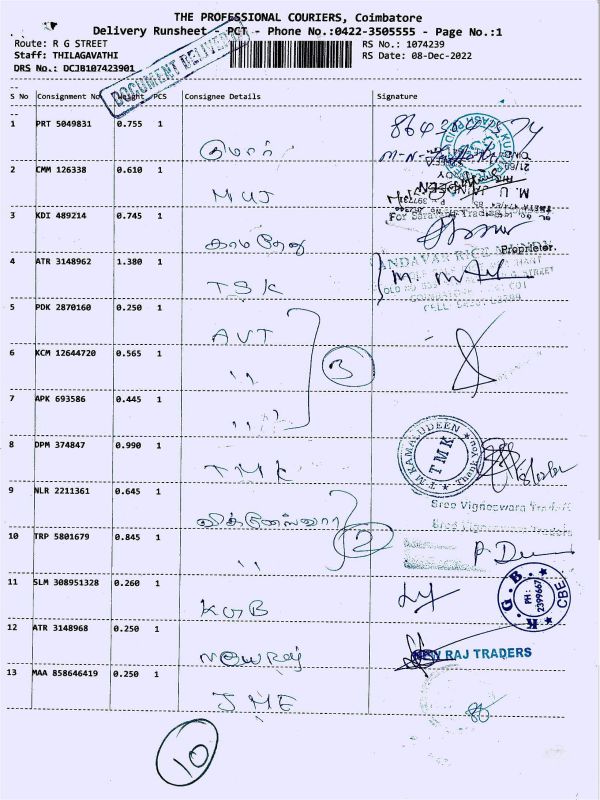 THE PROFESSIONAL COURIERS, Coimbatore
Delivery Runsheet - PCT - Phone No.:0422-3505555 - Page No.:1
Route: R G STREET
RS No.: 1074239
Staff: THILAGAVATHI
RS Date: 08-Dec-2022
DRS No.: DCJ8107423901
DOCUMENT DELIVERY
S No Consignment No Weight PCS Consignee Details Signature
1 PRT 5049831 0.755 1
குமார்
2 CMM 126338 0.610 1
MUJ
3 KDI 489214 0.745 1
காமதேனு
For Saravana Trading
Proprietor.
4 ATR 3148962 1.380 1
TSK
ANDAVAR RICE MUNDY
5 PDK 2870160 0.250 1
AVT
6 KCM 12644720 0.565 1
,,
3
7 APK 693586 0.445 1
,,
8 DPM 374847 0.990 1
TMK
T M KAMALUDEEN
TMK
9 NLR 2211361 0.645 1
விக்னேஸ்வரா
Sree Vigneswara Traders
Sree Vigneswara Traders
10 TRP 5801679 0.845 1
,,
2
11 SLM 308951328 0.260 1
KGB
K. G. B.
PH :
2399667
CBE
12 ATR 3148968 0.250 1
NEW RAJ
NEW RAJ TRADERS
13 MAA 858646419 0.250 1
JME
10